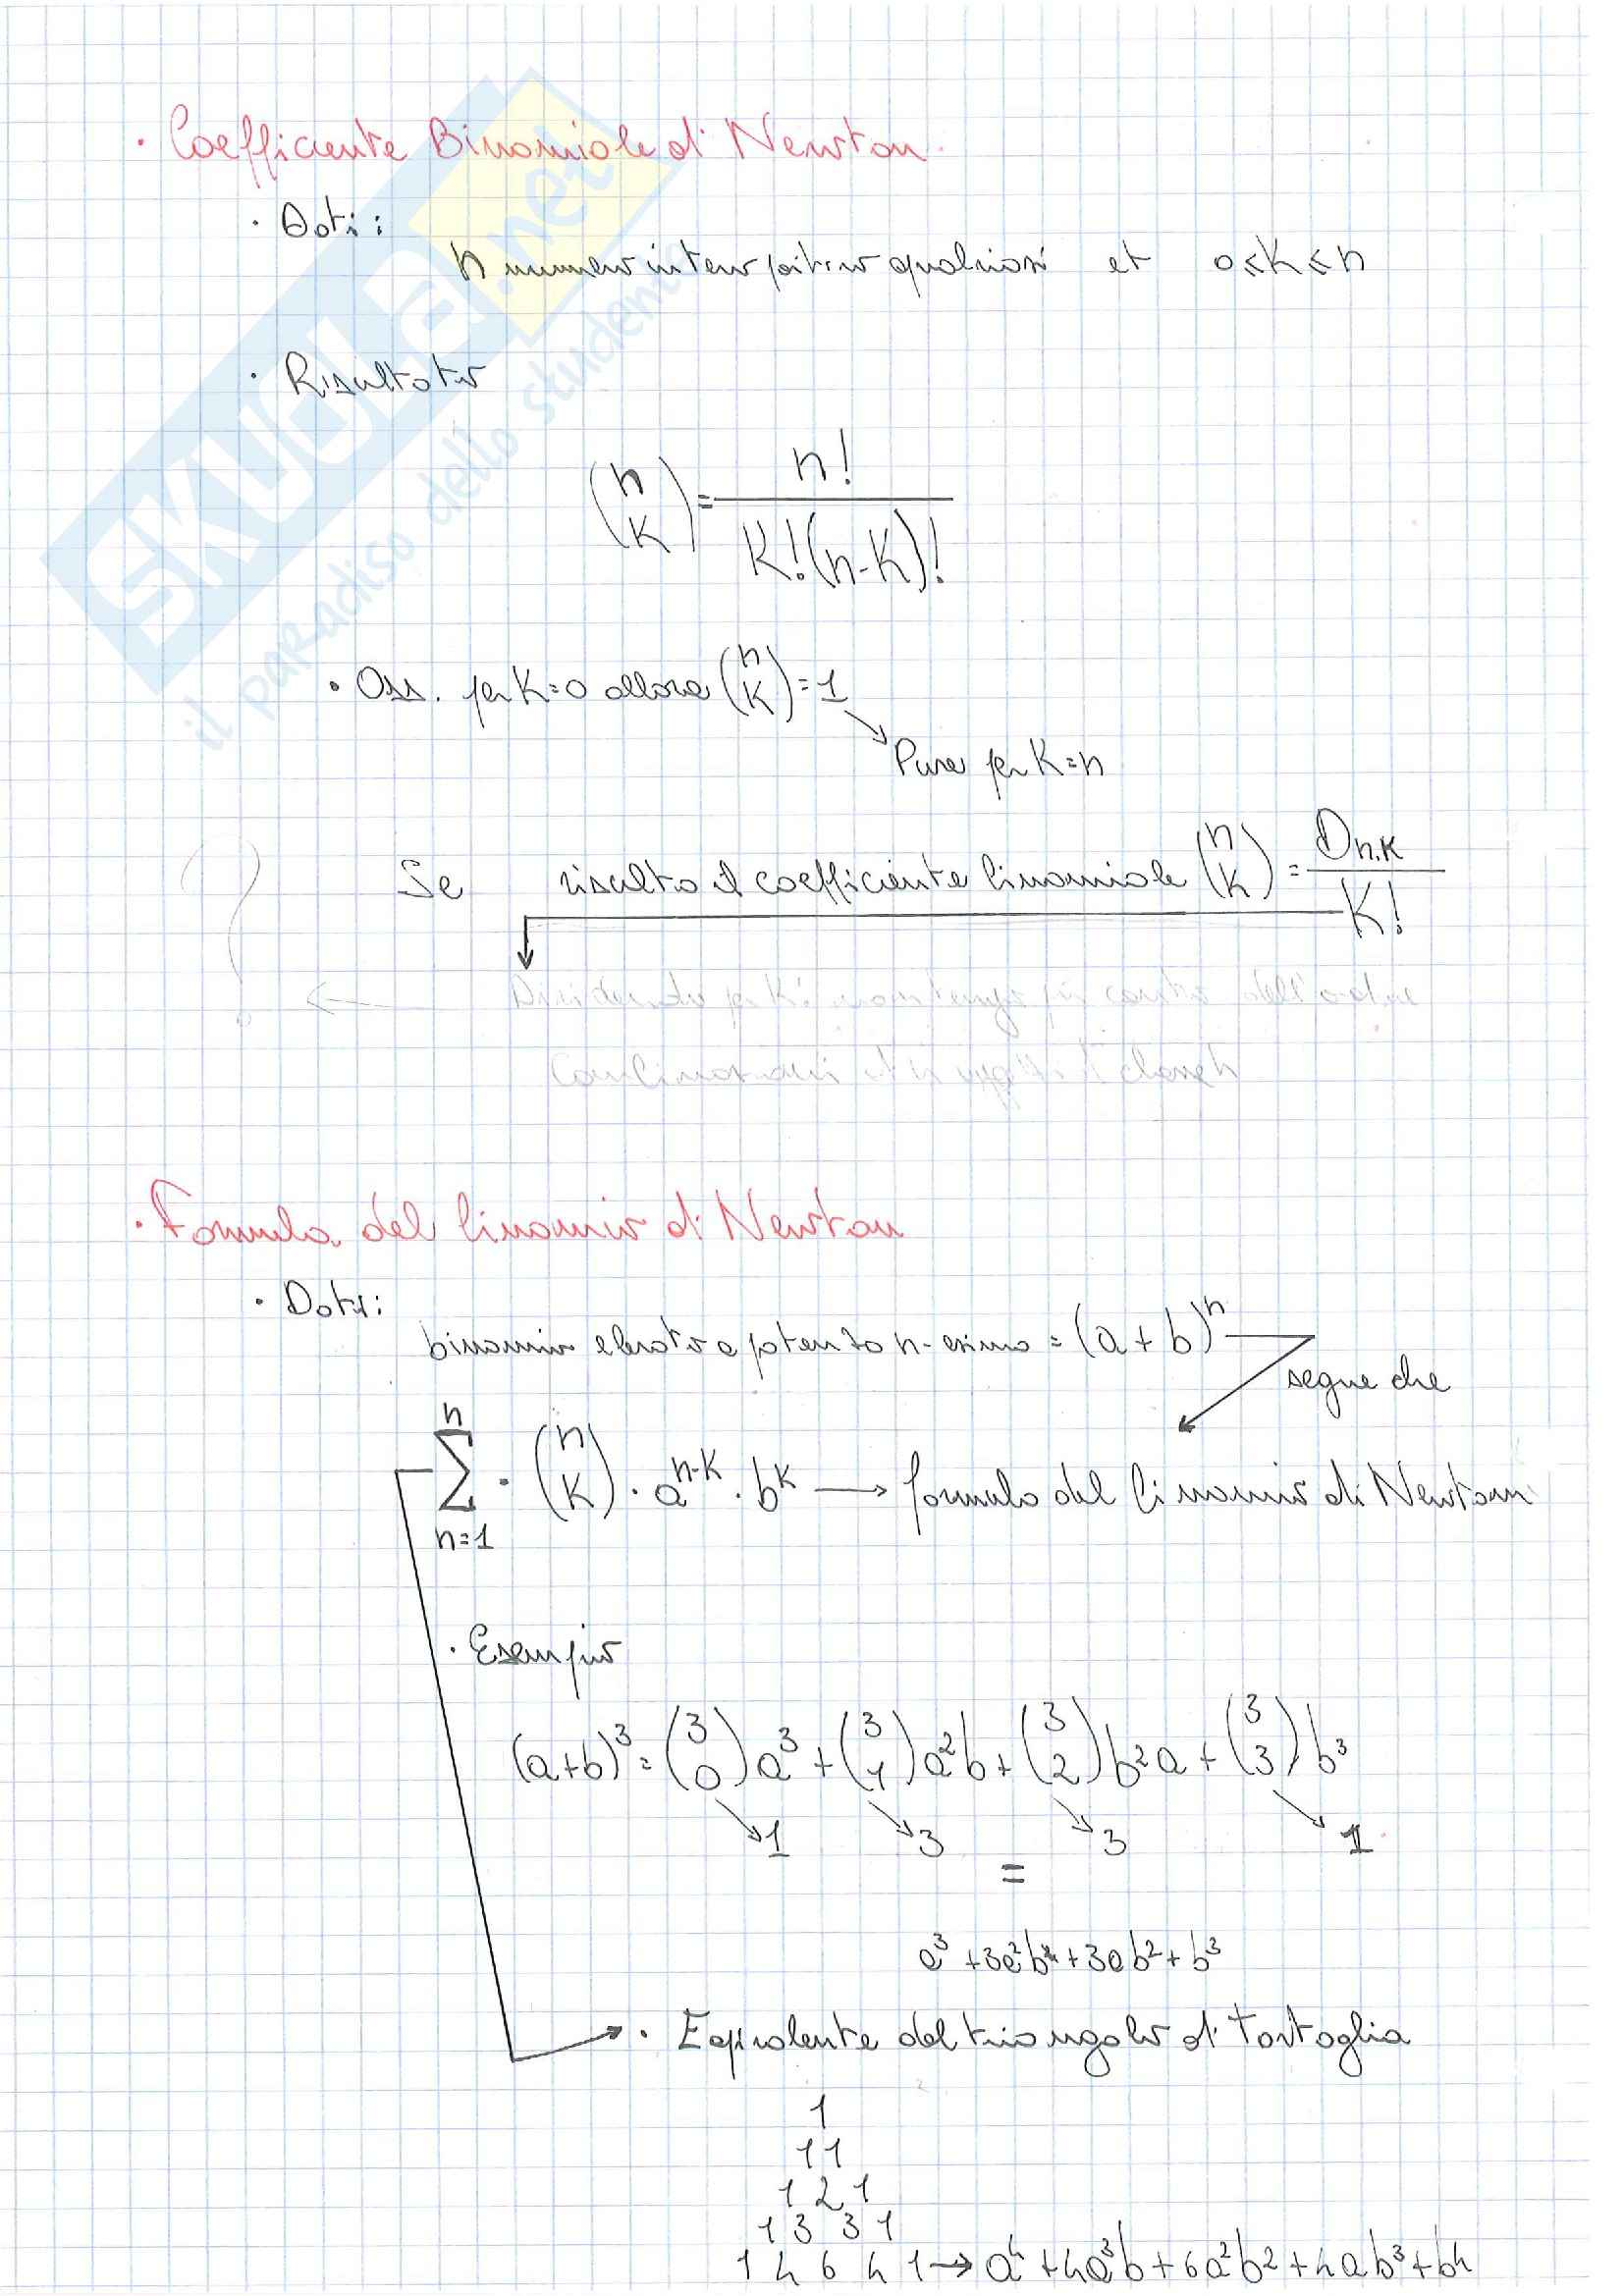 SKUOLA.net
il paradiso dello studente
· Coefficiente Binomiale di Newton.
· Dati:
n numero intero positivo qualsiasi et 0≤K≤n
· Risultato
(n K) = n! / K!(n-K)!
· Oss. per K=0 allora (n K) = 1
Pure per K=n
Se risulta il coefficiente binomiale (n K) = Dn,K / K!
?
Dividendo per K! non tengo più conto dell'ordine
Combinazioni di n oggetti di classe k
· Formula del binomio di Newton
· Dati:
binomio elevato a potenza n-esima = (a+b)^n
segue che
n
∑ · (n K) · a^n-K · b^K → formula del binomio di Newton
n=1
· Esempio
(a+b)^3 = (3 0)a^3 + (3 1)a^2b + (3 2)b^2a + (3 3)b^3
1 3 3 1
=
a^3 + 3a^2b + 3ab^2 + b^3
· Equivalente del triangolo di Tartaglia
1
1 1
1 2 1
1 3 3 1
1 4 6 4 1 → a^4 + 4a^3b + 6a^2b^2 + 4ab^3 + b^4